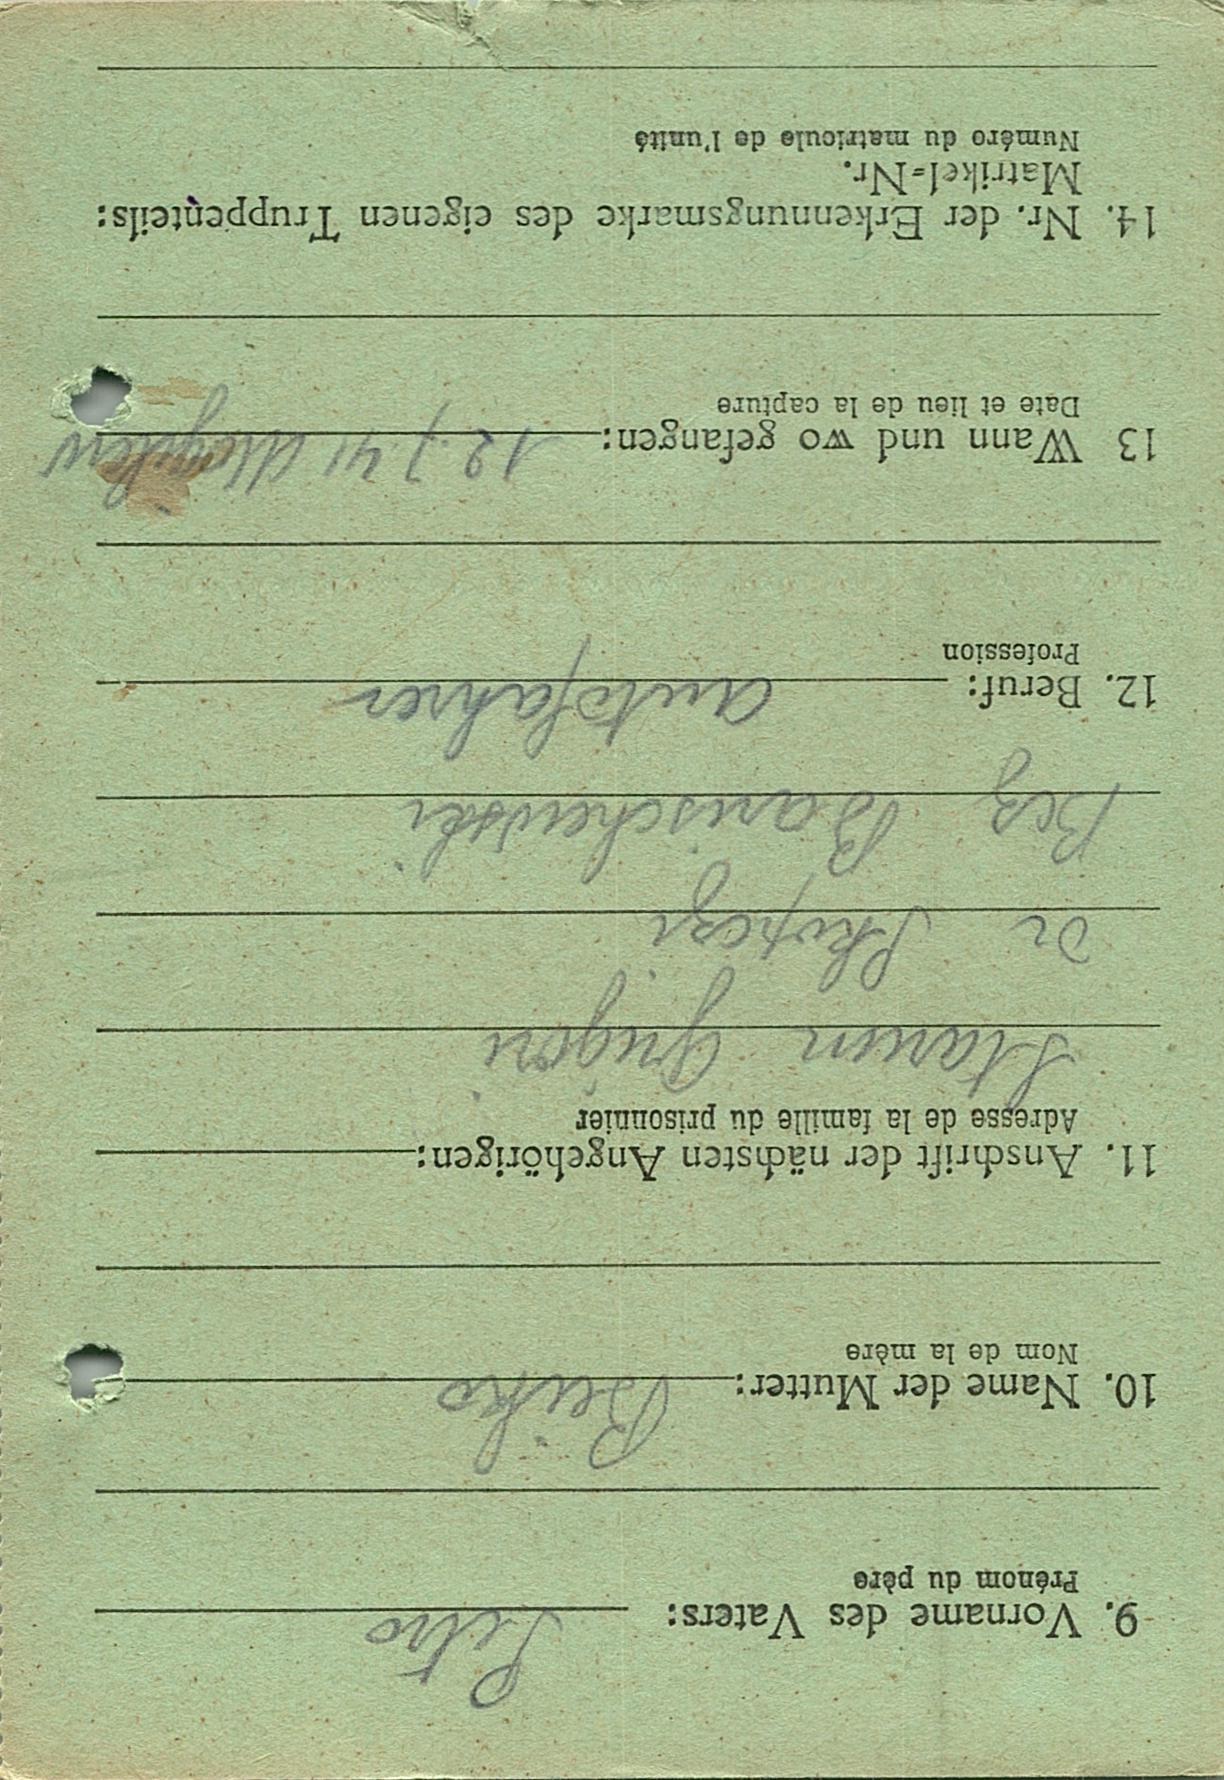 9. Vorname des Vaters: Petro
Prénom du père
10. Name der Mutter: Beiko
Nom de la mère
11. Anschrift der nächsten Angehörigen:
Adresse de la famille du prisonnier
Starun Grigori
Or
Bez Barischewski
12. Beruf: autofahrer
Profession
13 Wann und wo gefangen: 12.7.41 Mogilew
Date et lieu de la capture
14. Nr. der Erkennungsmarke des eigenen Truppenteils:
Matrikel=Nr.
Numéro du matricule de l'unité